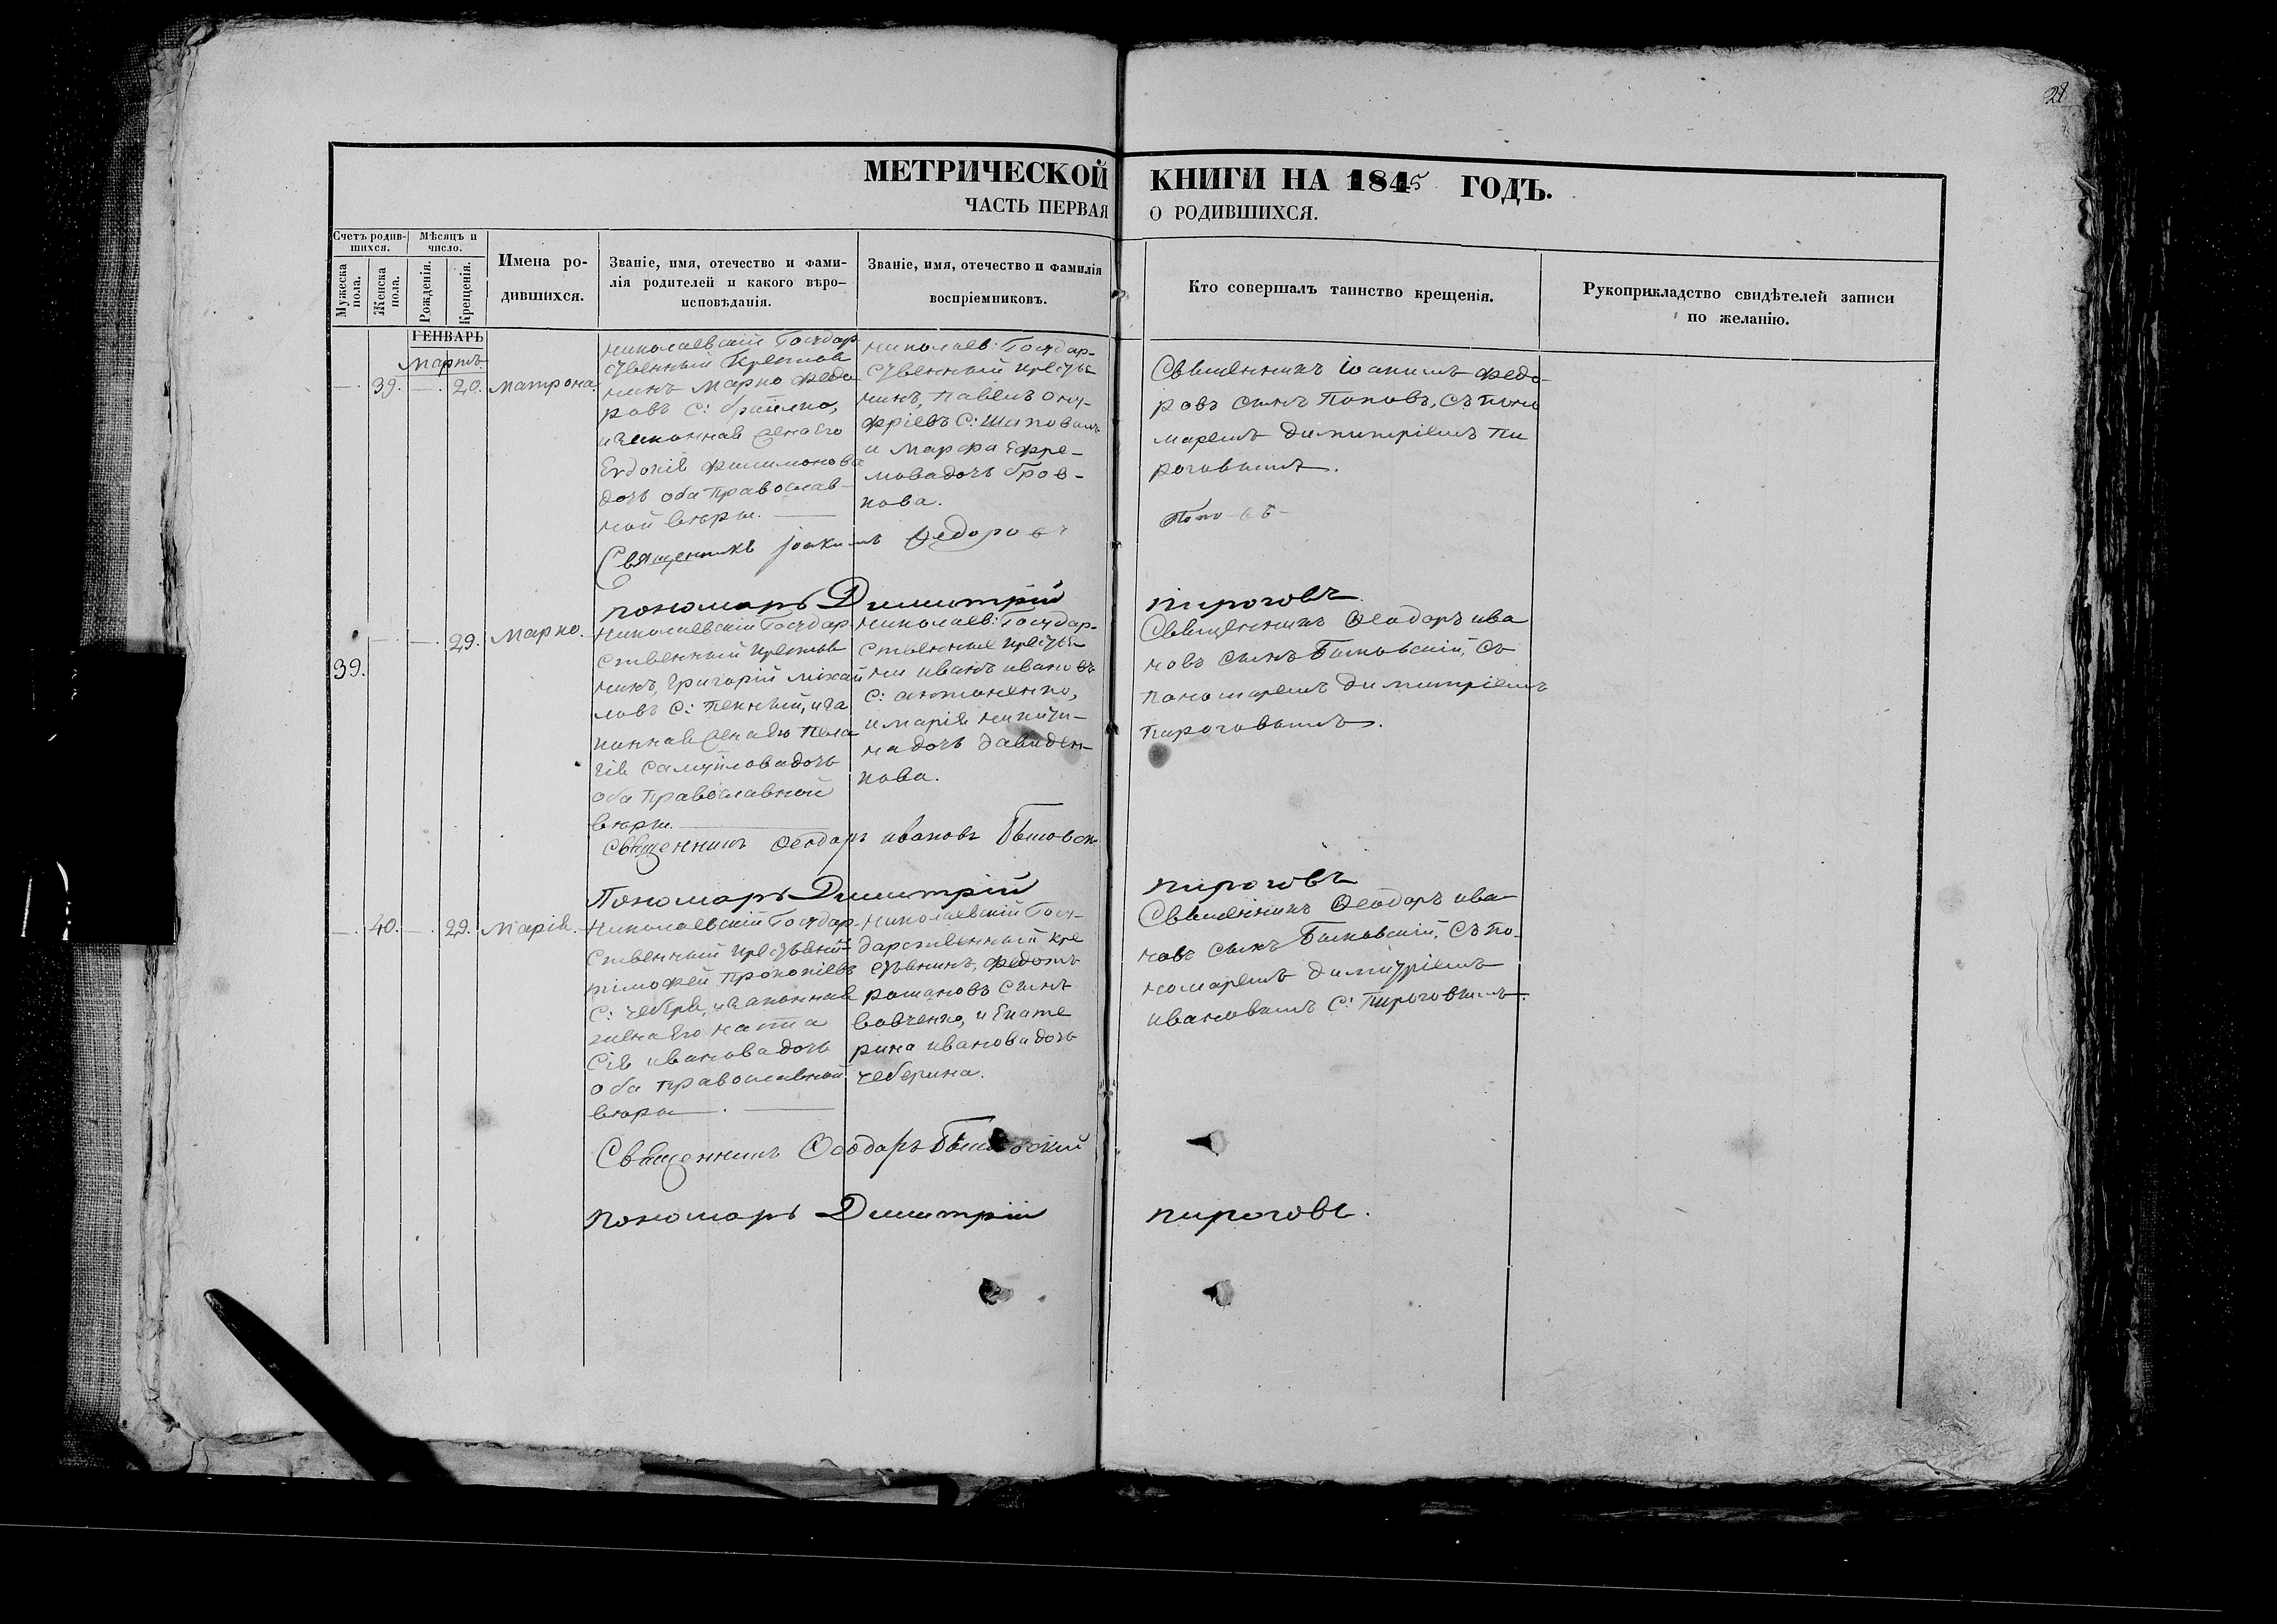 28
МЕТРИЧЕСКОЙ КНИГИ НА 1845 ГОДЪ.
ЧАСТЬ ПЕРВАЯ О РОДИВШИХСЯ.
Счетъ родив-
шихся.
Мѣсяцъ и
число.
Мужеска
пола.
Женска
пола.
Рожденія.
Крещенія.
Имена ро-
дившихся.
Званіе, имя, отечество и фами-
лія родителей и какого вѣро-
исповѣданія.
Званіе, имя, отечество и фамилія
воспріемниковъ.
Кто совершалъ таинство крещенія.
Рукоприкладство свидѣтелей записи
по желанію.
ГЕНВАРЬ
Мартъ.
—. 39. —. 20. Матрона.
Николаевскій Государ
ственный Крестья
нинъ Марко Федо
ровъ С:
и законная жена его
Евдокія Филимонова
дочь оба православ-
ной вѣры.
Николаев: Государ-
ственный крестья
нинъ, Павелъ Ону-
фріевъ С: Шаповалъ
и Марфа Ефре-
мова дочь
кова.
Священникъ Іоакимъ Федо-
ровъ сынъ Поповъ, съ поно
маремъ Димитріемъ Пи
роговымъ.
Священникъ Іоакимъ Федоровъ
Поповъ
пономарь Димитрій пироговъ
39. —. —. 29. Марко.
Николаевскій Государ
ственный крестья
нинъ, Григорій Михай
ловъ С: и за
конная жена его Пела
гія Самуйлова дочь
оба православной
вѣры.
Николаев: Государ-
ственные крестья
ни Иванъ Ивановъ
С: Антоненко,
и Марія Никити-
на дочь Давиден-
кова.
Священникъ Феодоръ Ива
новъ сынъ Быковскій, съ
пономаремъ Димитріемъ
Пироговымъ.
Священникъ Феодоръ Ивановъ
Пономарь Димитрій пироговъ
—. 40. —. 29. Марія.
Николаевскій Государ-
ственный
Тимофей Прокопіевъ
С: Чебря, и законная
жена его Наста
сія Иванова дочь
оба православной
вѣры.
Николаевскій Госу-
дарственный кре
стьянинъ, Федотъ
Романовъ сынъ
Вовченко, и Екате
рина Иванова дочь
Чебрина.
Священникъ Феодоръ Ива-
новъ сынъ Быковскій, съ по-
номаремъ Димитріемъ
Ивановымъ С: Пироговымъ.
Священникъ Феодоръ
пономарь Димитрій пироговъ.